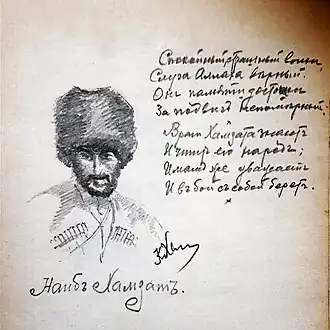 Спокойный страшный воин,
Слуга Аллаха вѣрный.
Онъ памяти достоин
За подвигъ непомѣрный.
Враги Хамзата знаютъ
И чтитъ его народъ;
Имамъ же уважаетъ
И въ бой съ собой беретъ.
Наибъ Хамзатъ.